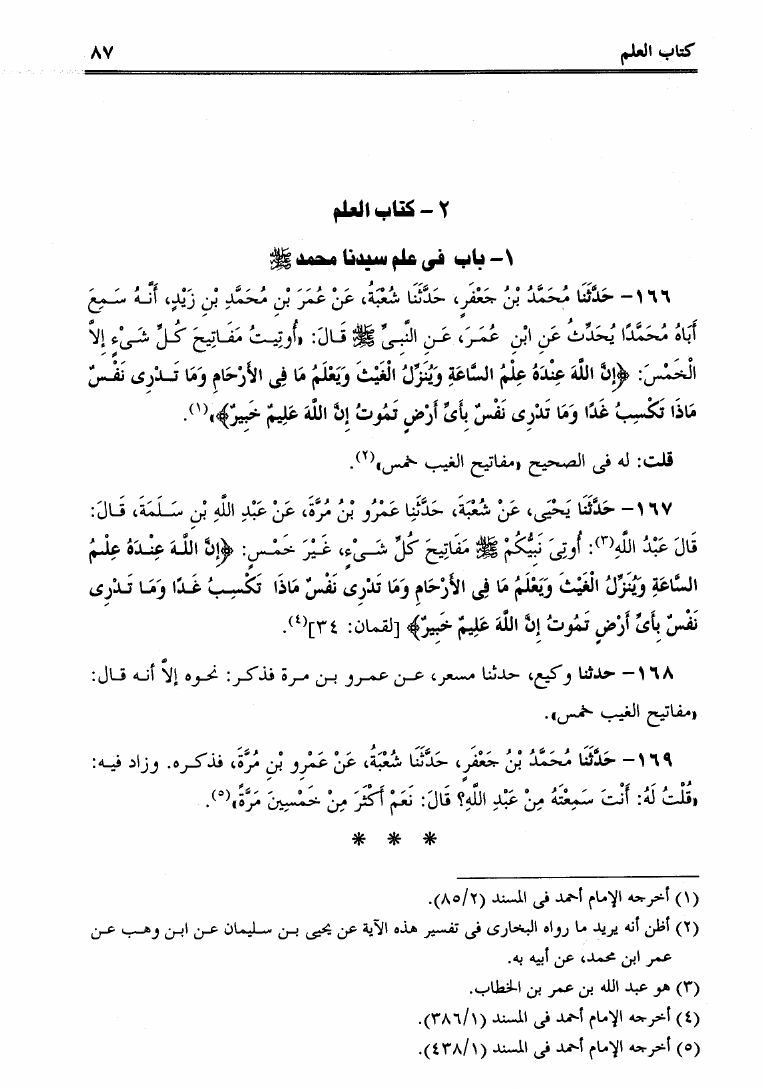 كتاب العلم ٨٧
٢- كتاب العلم
١- باب فى علم سيدنا محمد ﷺ
١٦٦- حَدَّثَنَا مُحَمَّدُ بْنُ جَعْفَرٍ، حَدَّثَنَا شُعْبَةُ، عَنْ عُمَرَ بْنِ مُحَمَّدِ بْنِ زَيْدٍ، أَنَّهُ سَمِعَ
أَبَاهُ مُحَمَّدًا يُحَدِّثُ عَنِ ابْنِ عُمَرَ، عَنِ النَّبِىِّ ﷺ قَالَ: «أُوتِيتُ مَفَاتِيحَ كُلِّ شَىْءٍ إِلاَّ
الْخَمْسَ: ﴿إِنَّ اللَّهَ عِنْدَهُ عِلْمُ السَّاعَةِ وَيُنَزِّلُ الْغَيْثَ وَيَعْلَمُ مَا فِى الأَرْحَامِ وَمَا تَدْرِى نَفْسٌ
مَاذَا تَكْسِبُ غَدًا وَمَا تَدْرِى نَفْسٌ بِأَىِّ أَرْضٍ تَمُوتُ إِنَّ اللَّهَ عَلِيمٌ خَبِيرٌ﴾»(١).
قلت: له فى الصحيح «مفاتيح الغيب خمس»(٢).
١٦٧- حَدَّثَنَا يَحْيَى، عَنْ شُعْبَةَ، حَدَّثَنِا عَمْرُو بْنُ مُرَّةَ، عَنْ عَبْدِ اللَّهِ بْنِ سَلَمَةَ، قَالَ:
قَالَ عَبْدُ اللَّهِ(٣): أُوتِىَ نَبِيُّكُمْ ﷺ مَفَاتِيحَ كُلِّ شَىْءٍ، غَيْرَ خَمْسٍ: ﴿إِنَّ اللَّهَ عِنْدَهُ عِلْمُ
السَّاعَةِ وَيُنَزِّلُ الْغَيْثَ وَيَعْلَمُ مَا فِى الأَرْحَامِ وَمَا تَدْرِى نَفْسٌ مَاذَا تَكْسِبُ غَدًا وَمَا تَدْرِى
نَفْسٌ بِأَىِّ أَرْضٍ تَمُوتُ إِنَّ اللَّهَ عَلِيمٌ خَبِيرٌ﴾ [لقمان: ٣٤](٤).
١٦٨- حدثنا وكيع، حدثنا مسعر، عن عمرو بن مرة فذكر: نحوه إلاَّ أنه قال:
«مفاتيح الغيب خمس».
١٦٩- حَدَّثَنَا مُحَمَّدُ بْنُ جَعْفَرٍ، حَدَّثَنَا شُعْبَةُ، عَنْ عَمْرِو بْنِ مُرَّةَ، فذكره. وزاد فيه:
«قُلْتُ لَهُ: أَنْتَ سَمِعْتَهُ مِنْ عَبْدِ اللَّهِ؟ قَالَ: نَعَمْ أَكْثَرَ مِنْ خَمْسِينَ مَرَّةً»(٥).
* * *
(١) أخرجه الإمام أحمد فى المسند (٨٥/٢).
(٢) أظن أنه يريد ما رواه البخارى فى تفسير هذه الآية عن يحيى بن سليمان عن ابن وهب عن
عمر ابن محمد، عن أبيه به.
(٣) هو عبد الله بن عمر بن الخطاب.
(٤) أخرجه الإمام أحمد فى المسند (٣٨٦/١).
(٥) أخرجه الإمام أحمد فى المسند (٤٣٨/١).